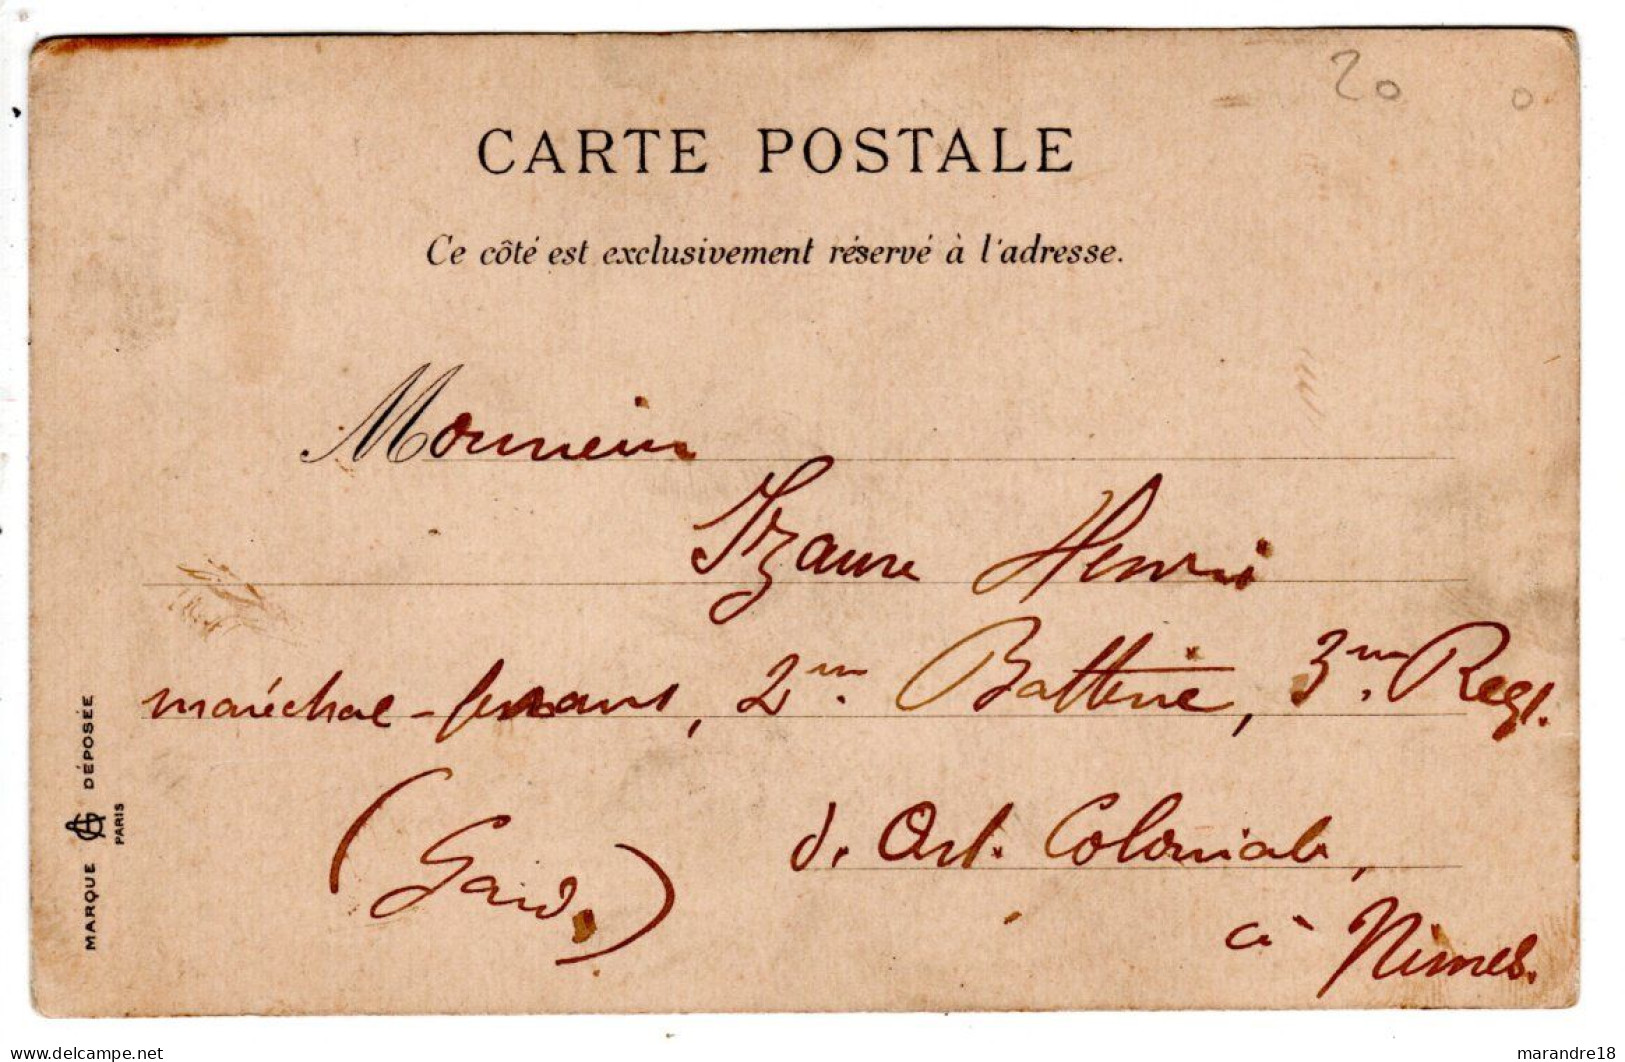 20
CARTE POSTALE
Ce côté est exclusivement réservé à l'adresse.
Monsieur
Izaure Henri
maréchal-ferrant, 2me Batterie, 3me Regt.
d'Art. Coloniale,
(Gard.)
à Nimes.
MARQUE AG DÉPOSÉE
PARIS
www.delcampe.net
marandre18